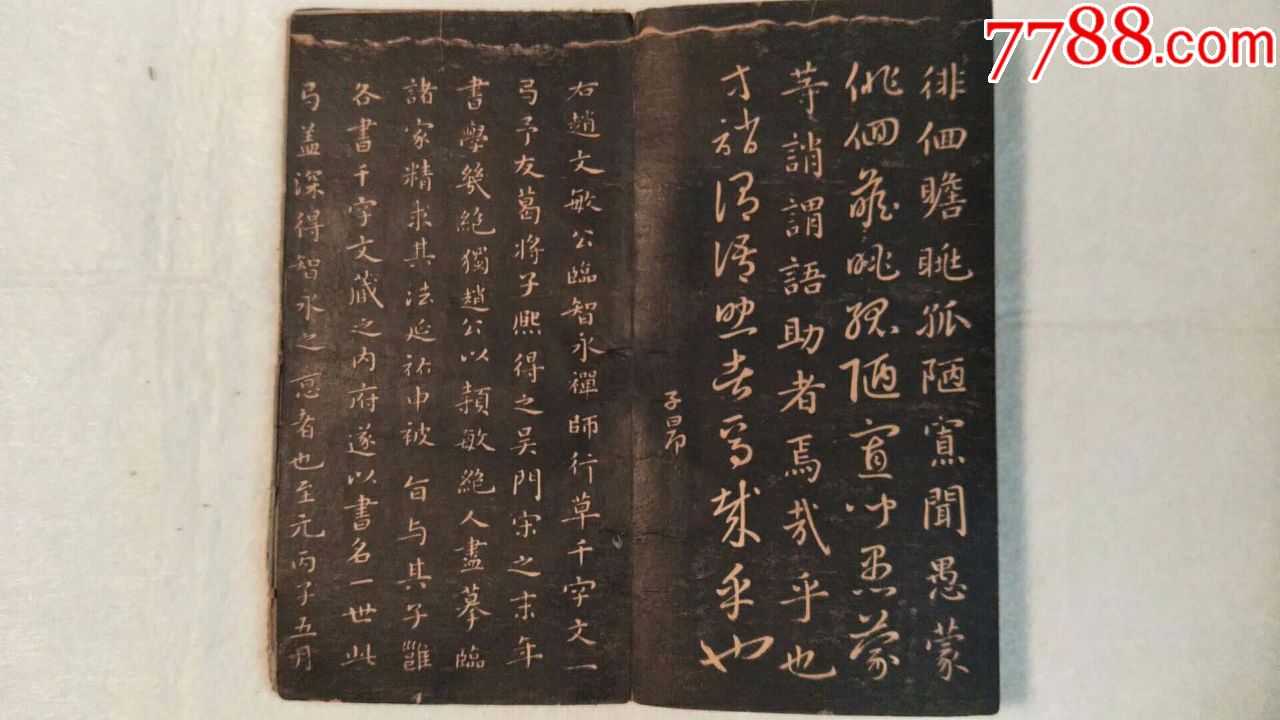 7788.com
徘佪瞻眺孤陋寡聞愚蒙
徘佪瞻眺孤陋寡聞愚蒙
等誚謂語助者焉哉乎也
等誚謂語助者焉哉乎也
子昂
右趙文敏公臨智永禪師行草千字文一
弓予友葛將子熙得之吴門宋之末年
書學幾絶獨趙公以穎敏絶人盡摹臨
諸家精求其法延祐中被旨与其子雝
各書千字文藏之内府遂以書名一世此
弓盖深得智永之意者也至元丙子五月